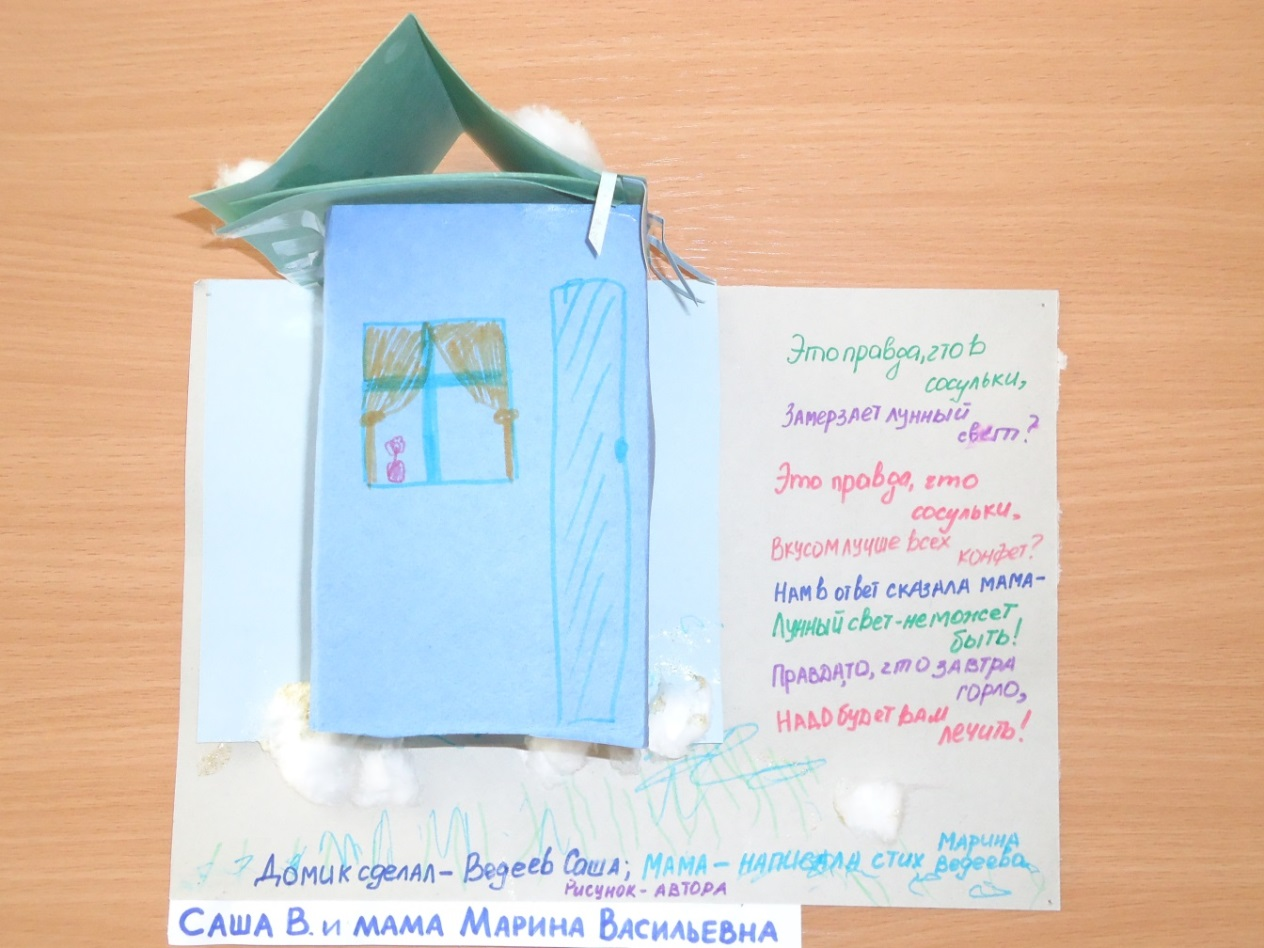 Это правда, что в
сосульки,
Замерзает лунный
свет?
Это правда, что
сосульки.
Вкусом лучше всех
конфет?
Нам в ответ сказала мама-
Лунный свет-не может
быть!
Правда,то, что завтра
горло,
Надо будет вам
лечить!
Домик сделал- Ведеев Саша; мама- написала стих Марина
Ведеева
Рисунок- автора
Саша В. и мама Марина Васильевна